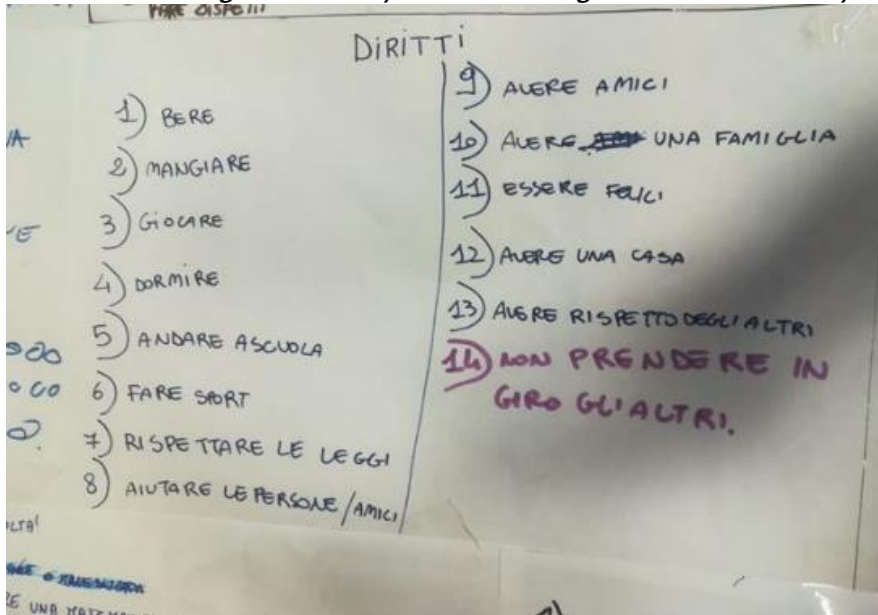 FARE DISPETTI
DIRITTI
1) BERE
2) MANGIARE
3) GIOCARE
4) DORMIRE
5) ANDARE A SCUOLA
6) FARE SPORT
7) RISPETTARE LE LEGGI
8) AIUTARE LE PERSONE/AMICI
9) AVERE AMICI
10) AVERE UNA FAMIGLIA
11) ESSERE FELICI
12) AVERE UNA CASA
13) AVERE RISPETTO DEGLI ALTRI
14) NON PRENDERE IN
GIRO GLI ALTRI.